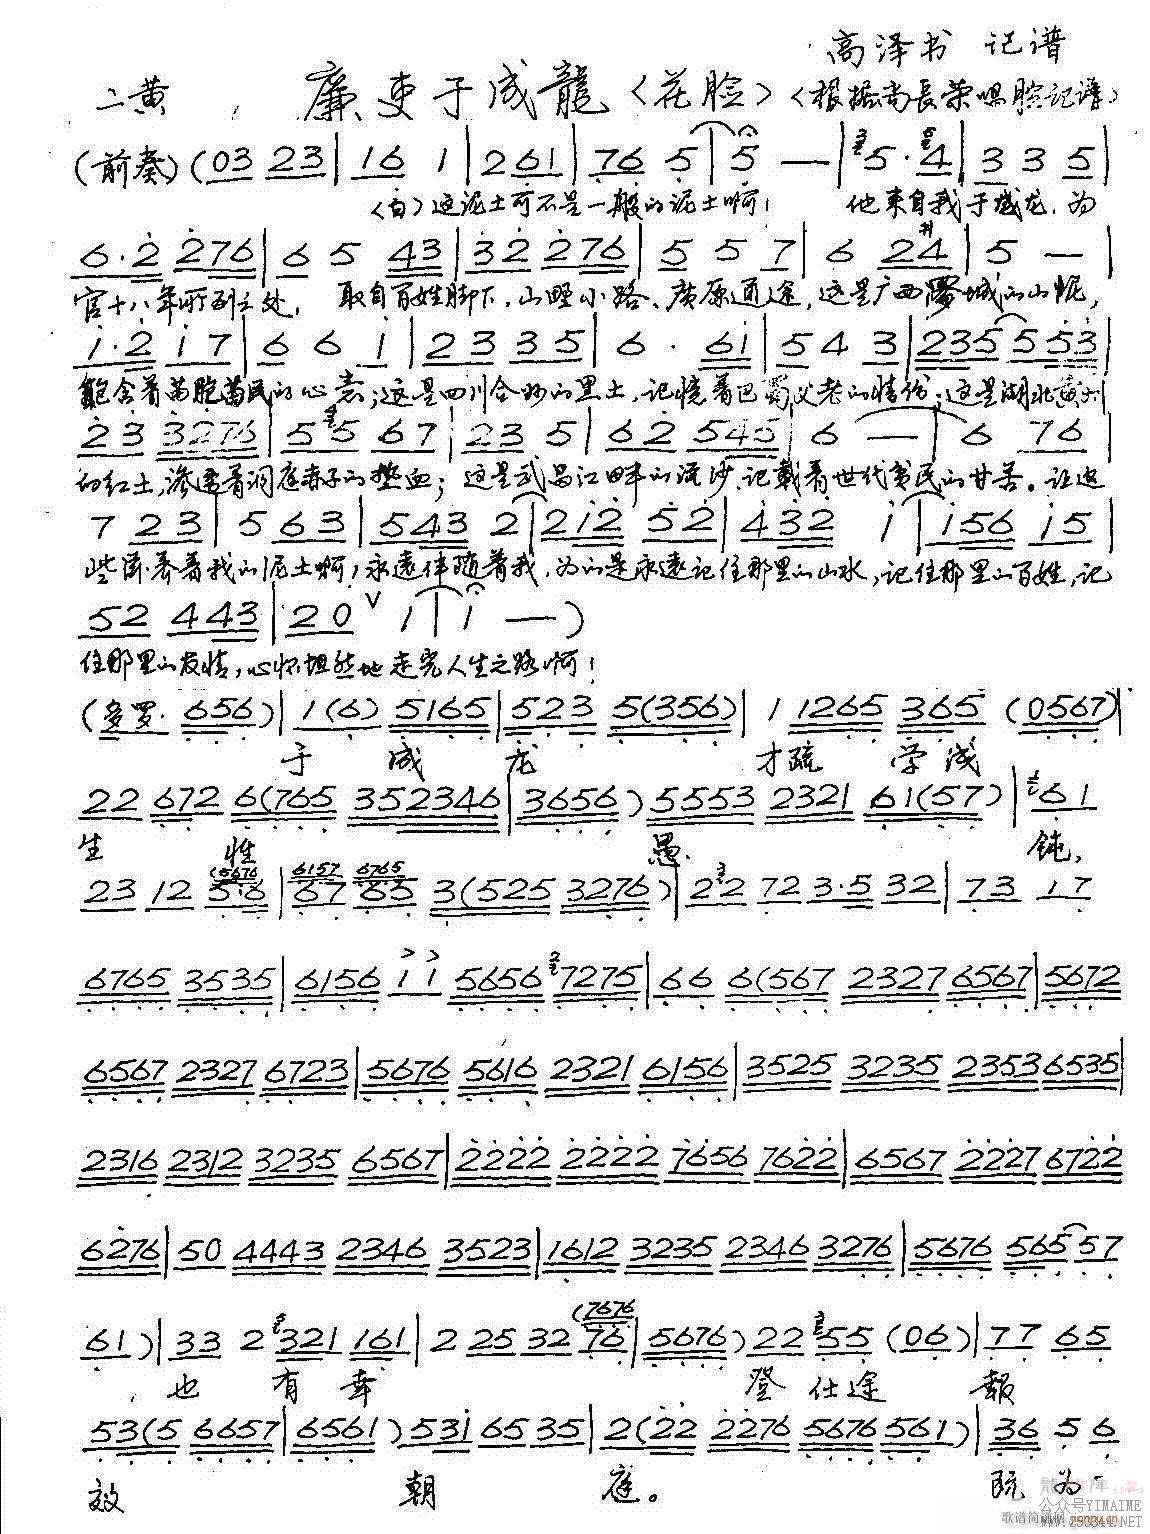 高泽书 记谱
二黄 廉吏于成龍〈花脸〉〈根据尚長荣唱腔记谱〉
(前奏)(03 23|16 1|261|76 5|5 —|5·4|3 3 5
〈白〉这泥土可不是一般的泥土啊! 他来自我于成龙,为
6·2 276|6 5 43|32 276|5 5 7|6 24|5 —|
官十八年所到之处, 取自百姓脚下,山野小路、广原通途,这是广西罗城的山泥,
1·2 17|6 6 1|23 35|6· 61|54 3|235 553|
饱含着苗胞苗民的心意;这是四川合州的黑土,记忆着巴蜀父老的情份;这是湖北黄州
23 3276|55 67|23 5|62 545|6 —|6 76
的红土,渗透着洞庭赤子的热血;这是武昌江畔的流沙,记載着世代贫民的甘苦。让这
7 23|5 63|543 2|212 52|432 1|156 15|
些滋养着我的泥土啊,永遠伴随着我,为的是永遠记住那里的山水,记住那里的百姓,记
52 443|20 V 1|1 —)
住那里的友情,心怀坦然地走完人生之路啊!
(多罗· 656)|1(6) 5165|523 5(356)|1 1265 365 (0567)|
于 成 龙 才疏 学浅
22 672 6(765 352346|3656) 5553 2321 61(57)|61
生 性 愚 钝,
(5676 6157 6765
23 12 5·6|67 65 3(525 3276)|22 72 3·5 32|73 17
6765 3535|6156 11 5656 7275|66 6(567 2327 6567|5672
6567 2327 6723|5676 5616 2321 6156|3525 3235 2353 6535|
2316 2312 3235 6567|2222 2222 7656 7622|6567 2227 6722
6276|50 4443 2346 3523|1612 3235 2346 3276|5676 565 57
(7676
61)|33 2 321 161|2 25 32 76|5676) 22 55 (06)|77 65
也 有 幸 登 仕途 報
53(5 6657|6561) 531 65 35|2(22 2276 5676 561)|36 5 6
效 朝 庭。 既 为一
公众号YIMAIME
歌谱简谱网